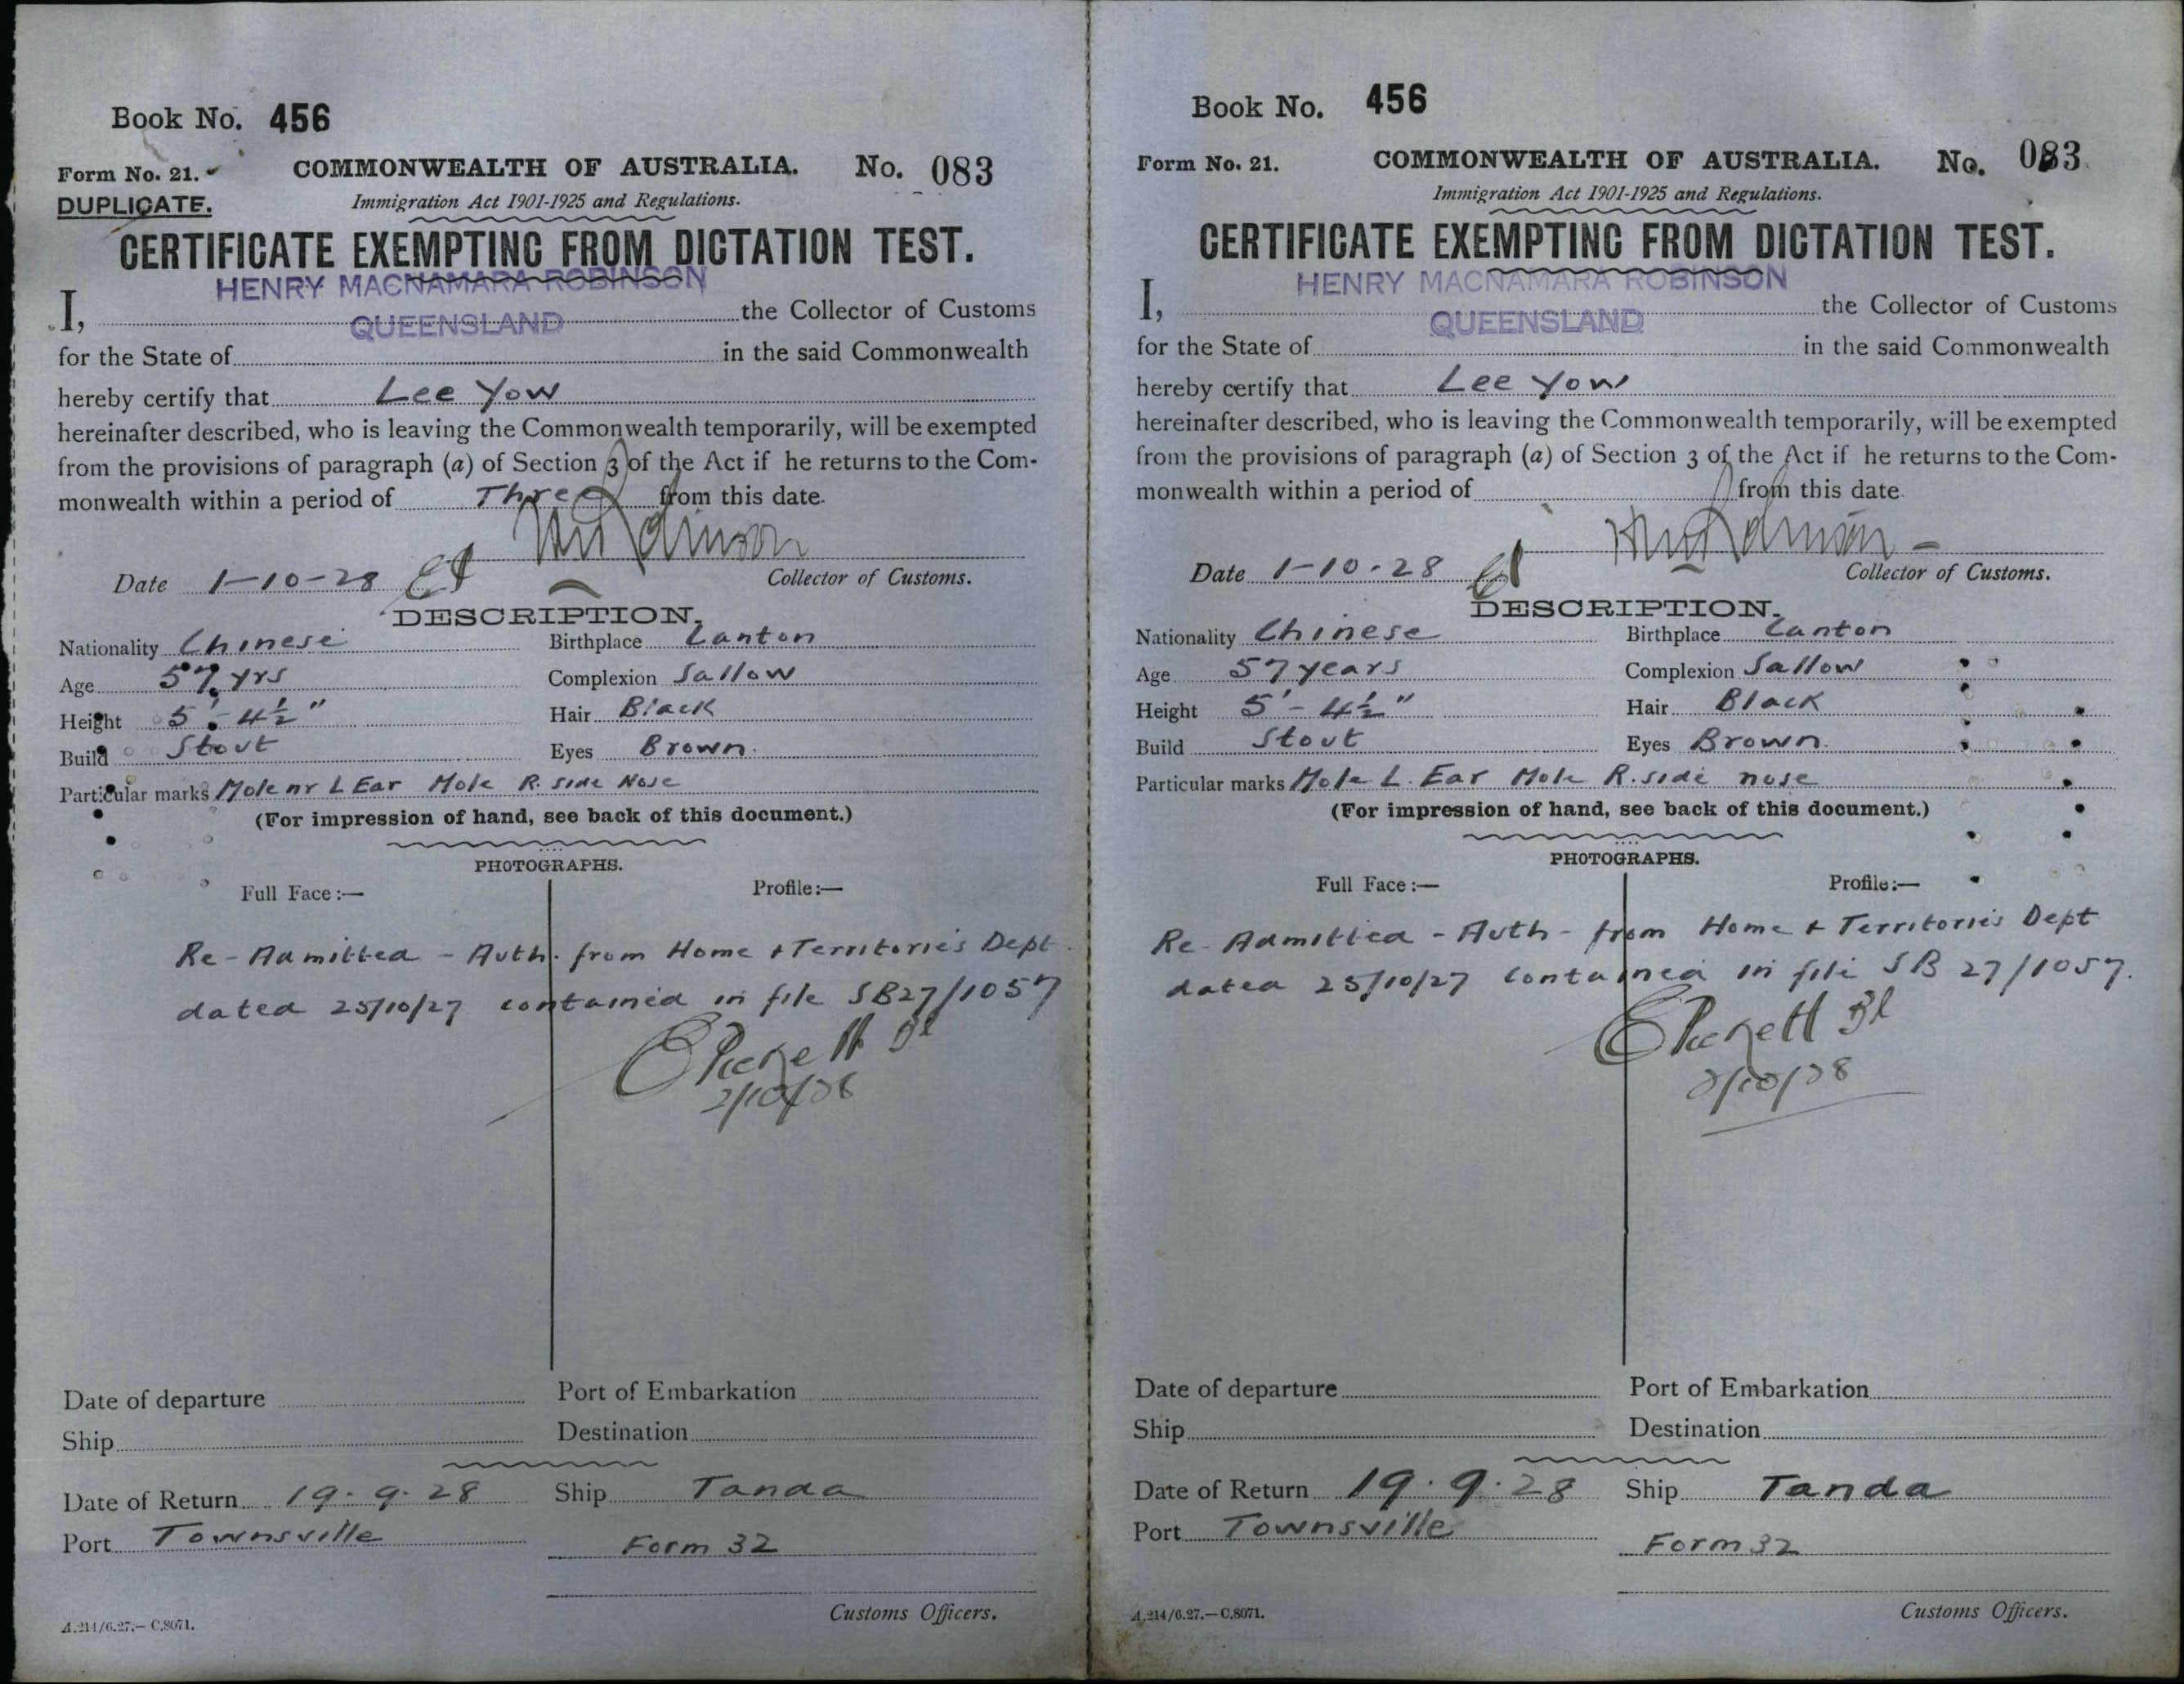 Book No. 456
Form No. 21.
COMMONWEALTH OF AUSTRALIA. No. 083
DUPLICATE.
Immigration Act 1901-1925 and Regulations.
CERTIFICATE EXEMPTING FROM DICTATION TEST.
HENRY MACNAMARA ROBINSON
I, the Collector of Customs
QUEENSLAND
for the State of in the said Commonwealth
hereby certify that Lee Yow
hereinafter described, who is leaving the Commonwealth temporarily, will be exempted
from the provisions of paragraph (a) of Section 3 of the Act if he returns to the Com-
monwealth within a period of Three from this date.
Date 1-10-28
Collector of Customs.
DESCRIPTION.
Nationality Chinese Birthplace Canton
Age 57 yrs Complexion Sallow
Height 5'-4½" Hair Black
Build Stout Eyes Brown.
Particular marks Mole nr L Ear Mole R. side Nose
(For impression of hand, see back of this document.)
PHOTOGRAPHS.
Full Face:— Profile:—
Re-Admitted - Auth. from Home & Territories Dept.
dated 25/10/27 contained in file SB27/1057
2/10/28
Date of departure Port of Embarkation
Ship Destination
Date of Return 19.9.28 Ship Tanda
Port Townsville Form 32
Customs Officers.
A.214/6.27.—C.8071.
Book No. 456
Form No. 21. COMMONWEALTH OF AUSTRALIA. No. 083
Immigration Act 1901-1925 and Regulations.
CERTIFICATE EXEMPTING FROM DICTATION TEST.
HENRY MACNAMARA ROBINSON
I, the Collector of Customs
QUEENSLAND
for the State of in the said Commonwealth
hereby certify that Lee Yow
hereinafter described, who is leaving the Commonwealth temporarily, will be exempted
from the provisions of paragraph (a) of Section 3 of the Act if he returns to the Com-
monwealth within a period of from this date.
Date 1-10-28
Collector of Customs.
DESCRIPTION.
Nationality Chinese Birthplace Canton
Age 57 years Complexion Sallow
Height 5'-4½" Hair Black
Build Stout Eyes Brown.
Particular marks Mole L. Ear Mole R. side nose
(For impression of hand, see back of this document.)
PHOTOGRAPHS.
Full Face:— Profile:—
Re-Admitted - Auth - from Home & Territories Dept
dated 25/10/27 contained in file SB 27/1057.
2/10/28
Date of departure Port of Embarkation
Ship Destination
Date of Return 19.9.28 Ship Tanda
Port Townsville Form 32
Customs Officers.
A.214/6.27.—C.8071.